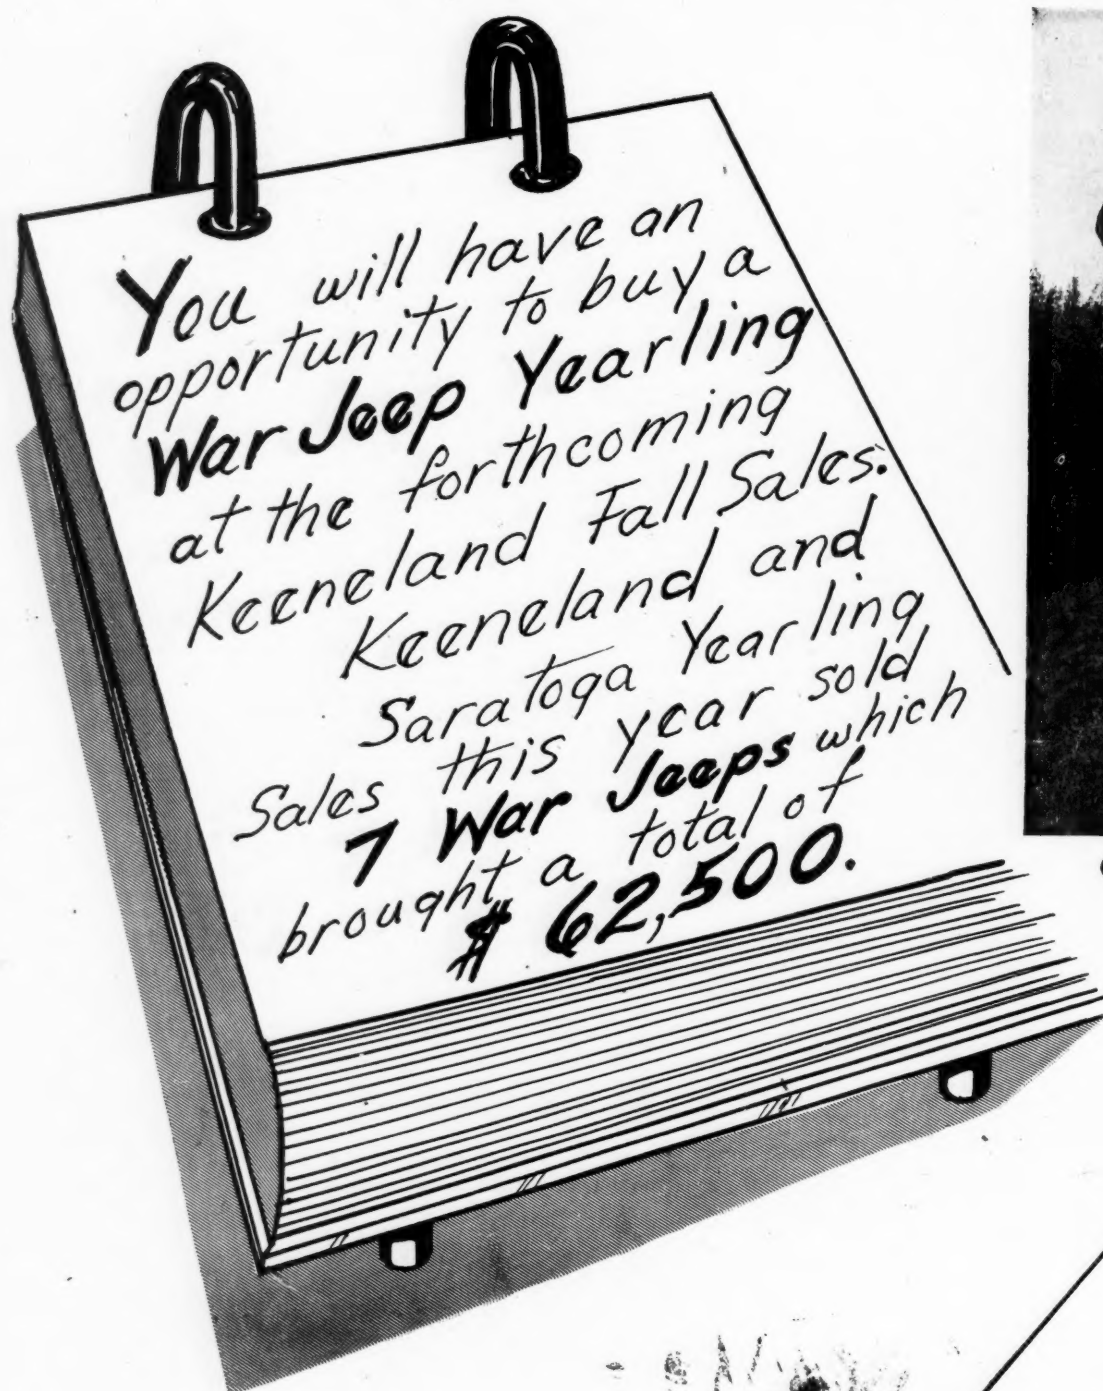 You will have an
opportunity to buy a
War Jeep Yearling
at the forthcoming
Keeneland Fall Sales.
Keeneland and
Saratoga Yearling
Sales this year sold
7 War Jeeps which
brought a total of
$ 62,500.